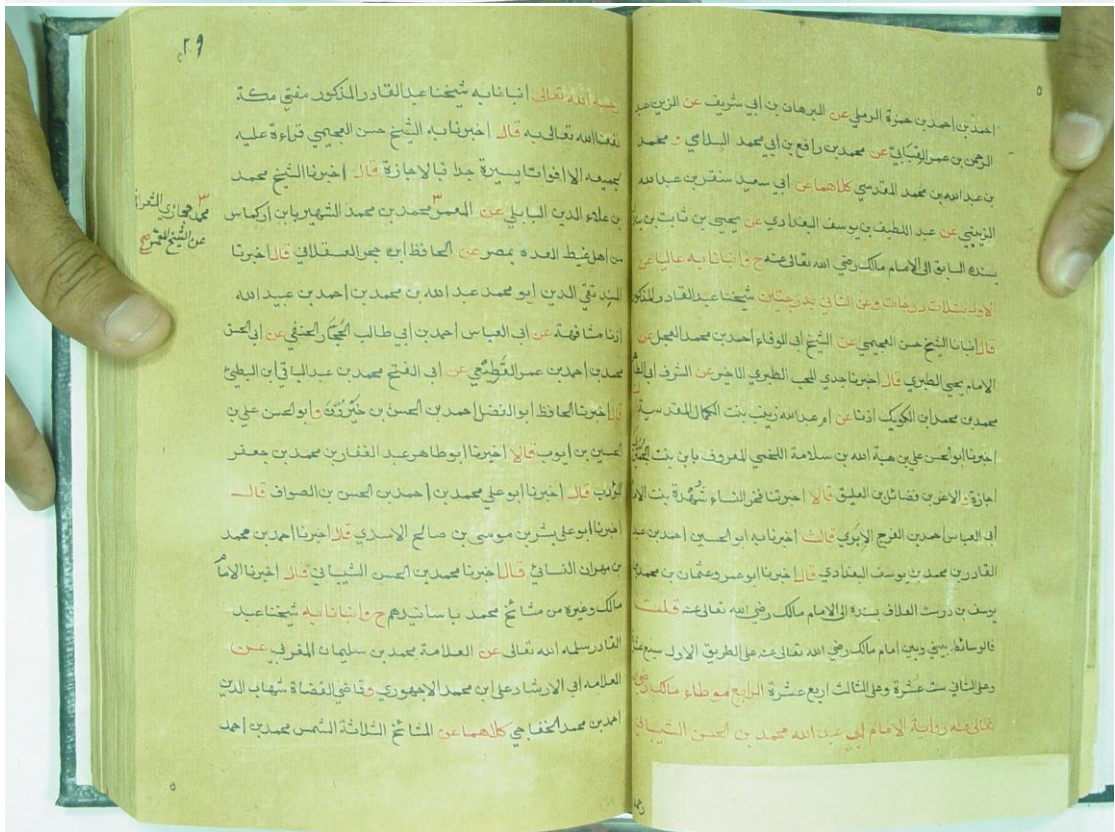 احمد بن احمد بن حمزة الرملي عن البرهان بن ابي شريف عن الزين عبد
الرحمن بن عمر القبابي عن محمد بن رافع بن ابي محمد السلامي و محمد
بن عبد الله بن محمد المقدسي كلاهما عن ابي سعيد سنقر بن عبد الله
الزيني عن عبد اللطيف بن يوسف البغدادي عن يحيى بن ثابت بن بندار
بسنده السابق الى الامام مالك رضي الله تعالى عنه ح وانبانا به عاليا عن
الاول بثلاث درجات وعن الثاني بدرجتين شيخنا عبد القادر المذكور
قال انبانا الشيخ حسن العجيمي عن الشيخ ابي الوفاء احمد بن محمد العجل عن
الامام يحيى الطبري قال اخبرنا جدي المحب الطبري الاخير عن الشرف ابي
محمد بن محمد ابن الكويك اذنا عن ام عبد الله زينب بنت الكمال المقدسية
اخبرنا ابو الحسن علي بن هبة الله بن سلامة اللخمي المعروف بابن بنت
اجازة و الاعز بن فضائل بن العليق قالا اخبرتنا فخر النساء شهدة بنت
ابي العباس احمد بن الفرج الابري قالت اخبرنا به ابو الحسين احمد بن عبد
القادر بن محمد بن يوسف البغدادي قال اخبرنا ابو عمر وعثمان بن محمد بن
يوسف بن دوست العلاف بسنده الى الامام مالك رضي الله تعالى عنه قلت
فالوسائط بيني وبين امام مالك رضي الله تعالى عنه على الطريق الاول سبع
وعلى الثاني ست عشرة وعلى الثالث اربع عشرة الرابع موطاء مالك رضي
تعالى عنه رواية الامام ابي عبد الله محمد بن الحسن الشيباني
٢٩
رحمه الله تعالى انبانا به شيخنا عبد القادر المذكور مفتي مكة
نفعنا الله تعالى به قال اخبرنا به الشيخ حسن العجيمي قراءة عليه
لجميعه الا افواتا يسيرة جدا فبالاجازة قال اخبرنا الشيخ محمد
بن علاء الدين البابلي عن المعمر ٣ محمد بن محمد الشهير بابن اركماس
من اهل غيط العدة بمصر عن الحافظ ابن حجر العسقلاني قال اخبرنا
السيد تقي الدين ابو محمد عبد الله بن محمد بن احمد بن عبيد الله
اذنا مشافهة عن ابي العباس احمد بن ابي طالب الحجار الحنفي عن ابي الحسن
محمد بن احمد بن عمر القطيعي عن ابي الفتح محمد بن عبد الباقي ابن البطي
قال اخبرنا الحافظ ابو الفضل احمد بن الحسن بن خيرون و ابو الحسن علي بن
الحسين بن ايوب قالا اخبرنا ابو طاهر عبد الغفار بن محمد بن جعفر
المؤدب قال اخبرنا ابو علي محمد بن احمد بن الحسن بن الصواف قال
اخبرنا ابو علي بشر بن موسى بن صالح الاسدي قال اخبرنا احمد بن محمد
بن مهران النسائي قال اخبرنا محمد بن الحسن الشيباني قال اخبرنا الامام
مالك وغيره من مشائخ محمد باسانيدهم ح وانبانا به شيخنا عبد
القادر سلمه الله تعالى عن العلامة محمد بن سليمان المغربي عن
العلامه ابي الارشاد على ابن محمد الاجهوري و قاضي القضاة شهاب الدين
احمد بن محمد الخفاجي كلاهما عن المشائخ الثلاثة الشمس محمد بن احمد
٣
محمد حجازي
عن الشيخ المعمر صح